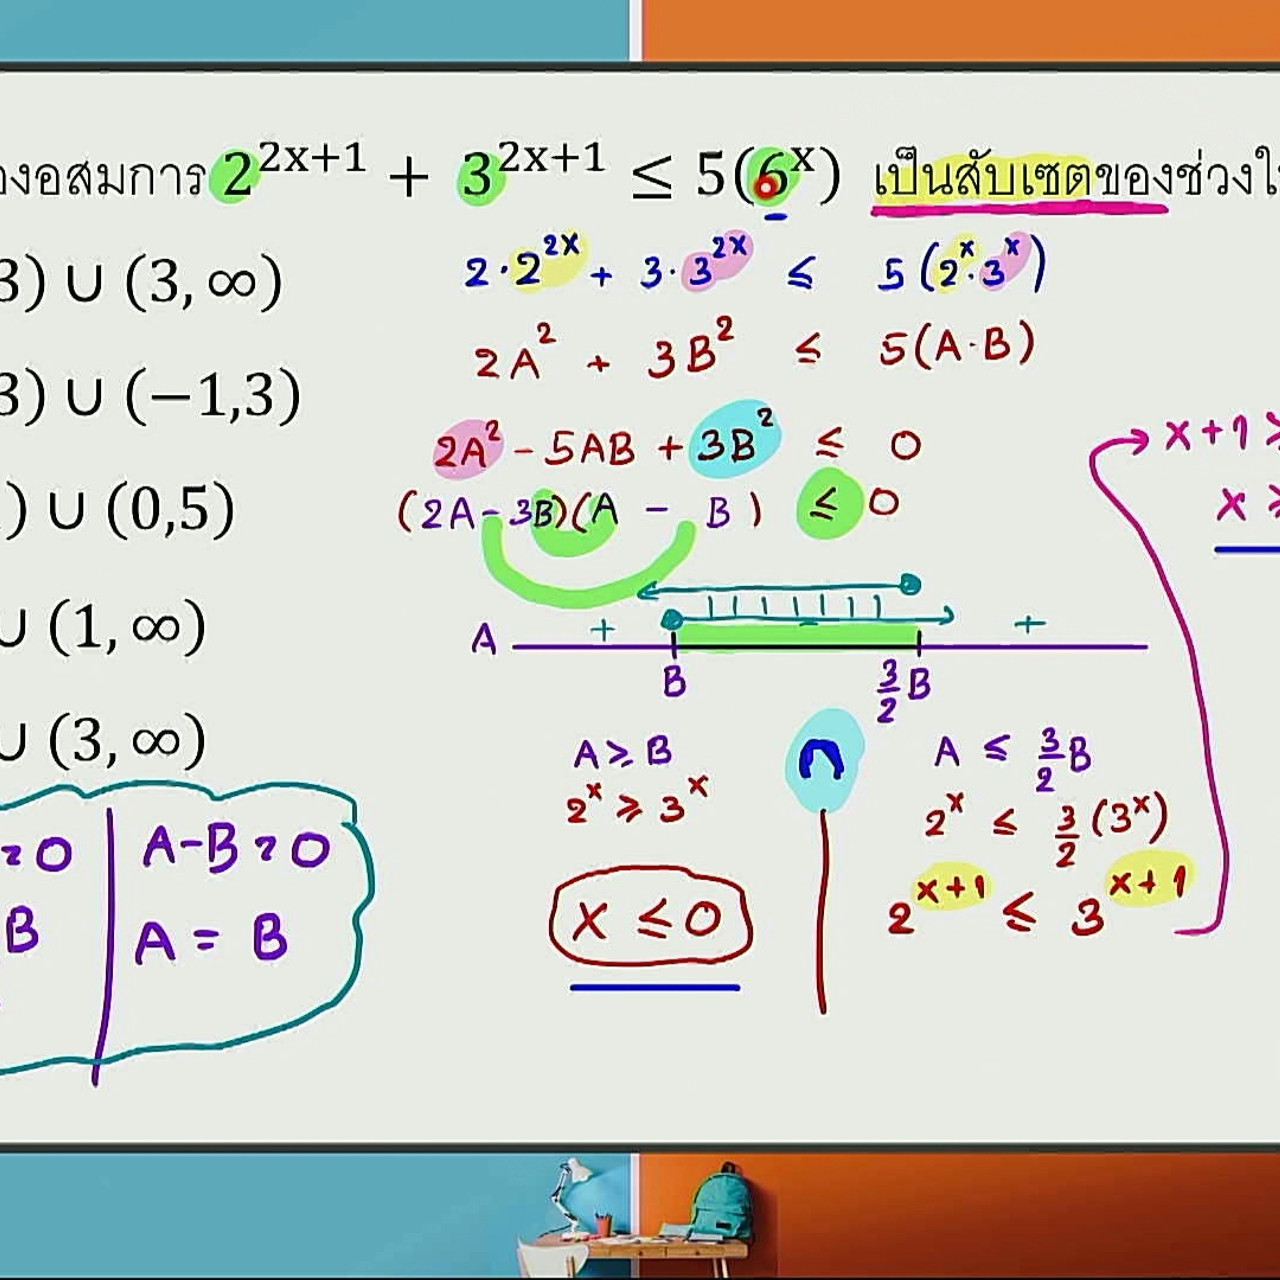 องอสมการ 2^{2x+1} + 3^{2x+1} ≤ 5(6^x) เป็นสับเซตของช่วงใ
3) ∪ (3, ∞)
3) ∪ (−1,3)
) ∪ (0,5)
∪ (1, ∞)
∪ (3, ∞)
2·2^{2x} + 3·3^{2x} ≤ 5(2^x·3^x)
2A² + 3B² ≤ 5(A·B)
2A² - 5AB + 3B² ≤ 0
(2A - 3B)(A - B) ≤ 0
+ - +
A
B 3/2 B
A ≥ B ∩ A ≤ 3/2 B
2^x ≥ 3^x 2^x ≤ 3/2 (3^x)
x ≤ 0 2^{x+1} ≤ 3^{x+1}
x+1 ≥
x ≥
= 0 A-B = 0
B A = B